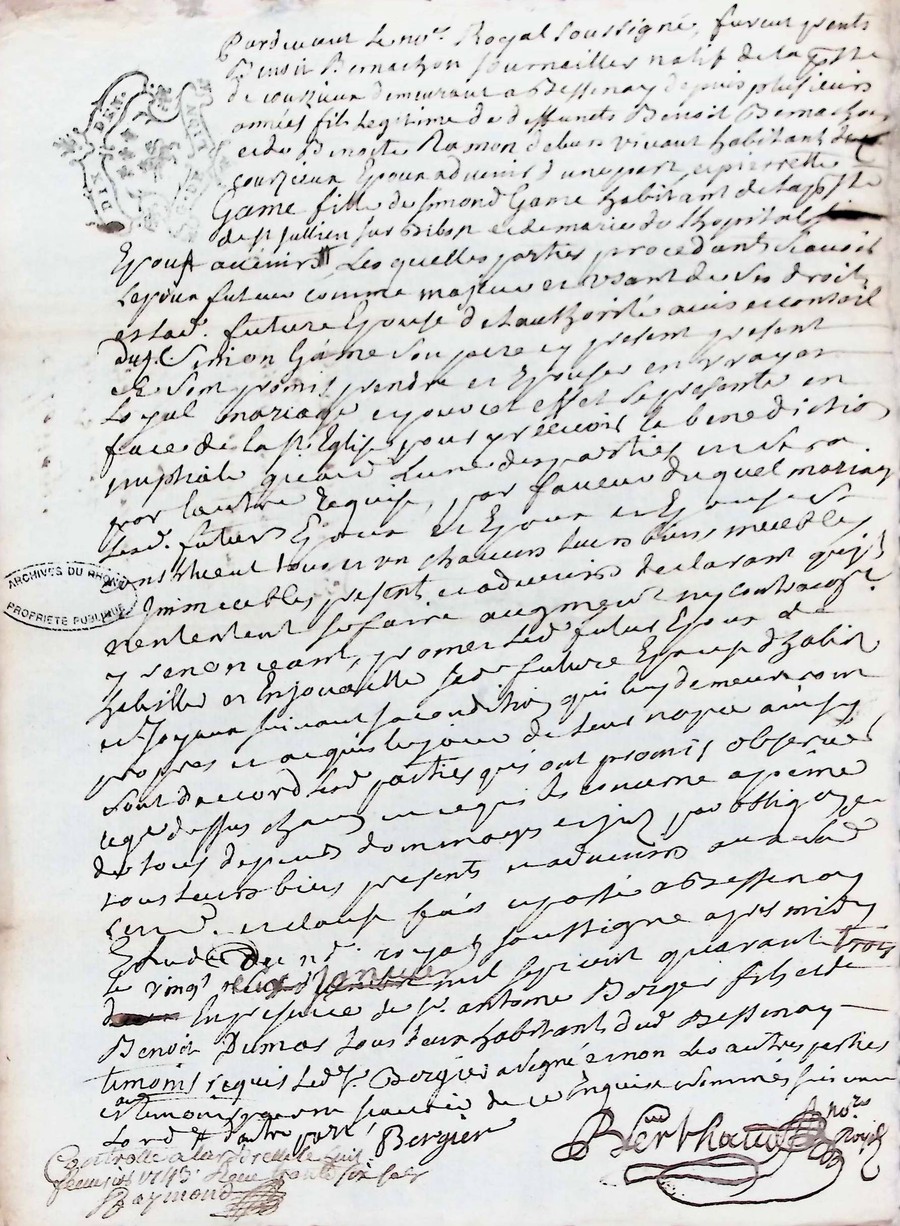 Pardevant Le nore Royal soussigné, furent presents
Benoit Bernachon Journaillier natif de la psse
de couzieux demeurant a Bessenay depuis plusieurs
années fils Legitime de deffunts Benoit Bernachon
et de Benoite Ramon de leurs vivant habitant de
courzieux Epoux advenir d'une part, et pierrette
Game fille de Simond Game habitant de la psse
de st Jullien sur Bibost et de marie du Lhopital
Epouse avenir Les quelles parties procedants scavoir
Lepoux futeur comme majeur et usant de ses droits
et lad. future Epouse de Lauthorité avis et conseil
dud. Simon Game son pere cy present
se sont promis prendre et Epouser en vray et
Loyal mariage et pour cet effet se presenter en
face de la ste Eglise pour y recevoir la benediction
nuptiale quand Lune des parties en sera
par lautre Requise, par faveur du quel mariage
lesd. futurs Epoux et Epouse se
constituent tous et un chacuns leurs biens meubles
Immeubles presents et advenirs declarant quils
nentendent se faire augment ny contraugt
y renonceant, promet led. futur Epoux d
habiller et Enjoualler sad. future Epouse d'habits
et Joyaux suivant sa condition qui luy demeureront
propres et acquis le jour de leur nopce ainsy
sont daccord lesd. parties qui ont promis observer
ce que dessus chacun en ce qui les concerne a peine
de tous depens dommages et jnts par obligaon de
tous leurs biens presents et advenirs
et clause fait et passé a Bessenay
Etude du nd. royal soussigné apres midy
le vingt Janvier mil sept cent quarante trois
En presence de sr. antoine Bergier fils et de
Benoit Dumas tous deux habitant dud Bessenay
temoins requis Led. sr. Bergier a signé et non Les autres parties
et temoins pour ne scavoir de ce Enquis et sommés suivant
Lord. Bergier
Berthaud nore Royal
Controllé a larbrelle le huit
fevrier 1743. Reçu trente six sols
Raymond
DIX DEN.
ARCHIVES DU RHÔNE
PROPRIÉTÉ PUBLIQUE